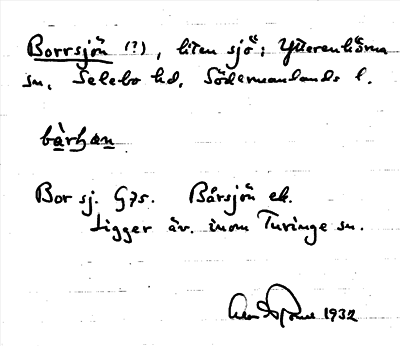 Borrsjön (?), liten sjö i Ytterenhörna
sn, Selebo hd, Södermanlands l.
bàrhæn
Bor sj. G75. Bårsjön ek.
Ligger äv. inom Turinge sn.
1932